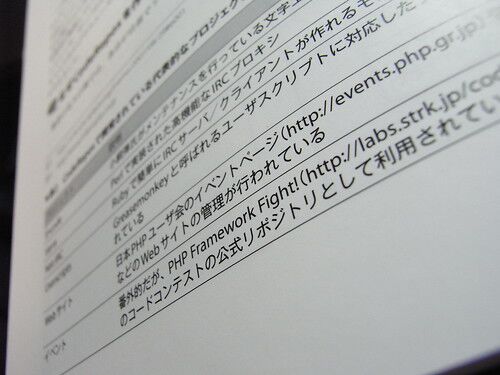 されている代表的なプロジェク
メンテナンスを行っている文字エ
Perlで実装された高機能なIRCプロキシ
Rubyで簡単にIRCサーバ／クライアントが作れるモ
Greasemonkeyと呼ばれるユーザスクリプトに対応した
れている
日本PHPユーザ会のイベントページ(http://events.php.gr.jp)
などのWebサイトの管理が行われている
Webサイト
番外的だが、PHP Framework Fight!(http://labs.strk.jp/cod
のコードコンテストの公式リポジトリとして利用されてい
イベント